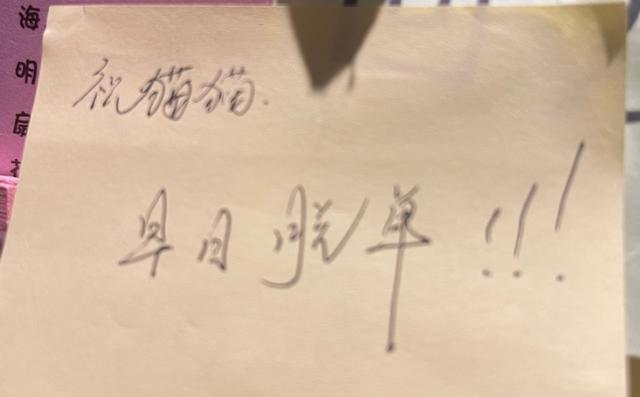 海
明
祝猫猫.
早日脱单!!!